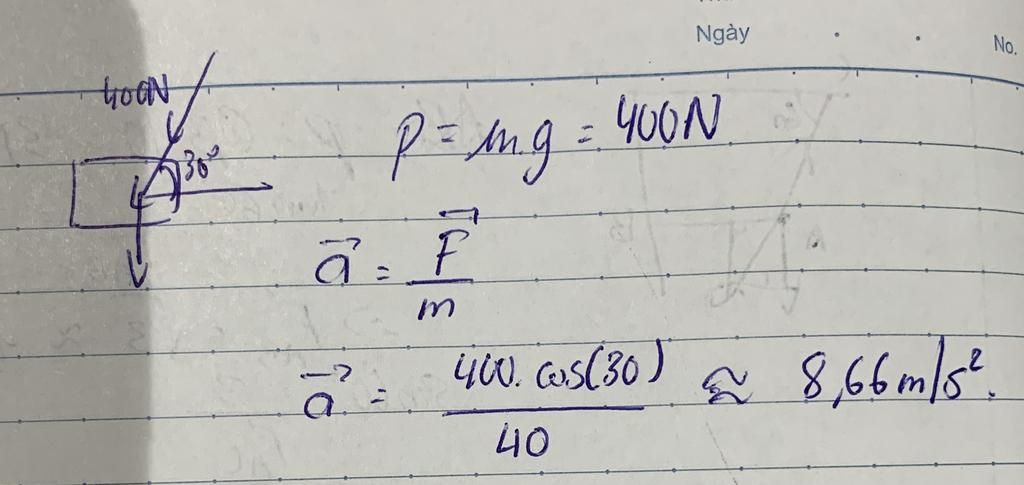 Ngày
No.
400N
30°
P = m.g = 400N
a = F / m
a = 400. cos(30) / 40 ≈ 8,66 m/s².